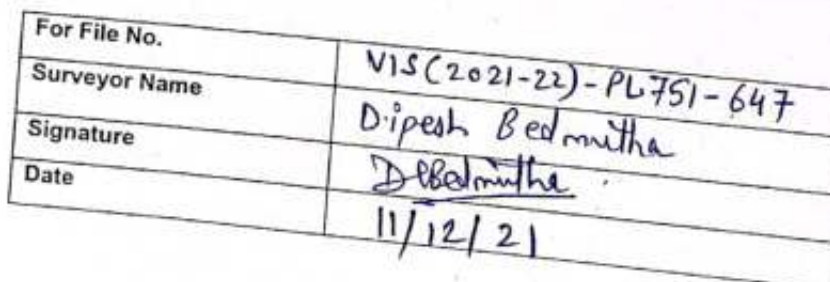 For File No. VIS(2021-22)-PL751-647
Surveyor Name Dipesh Bedmutha
Signature DBBedmutha
Date 11/12/21